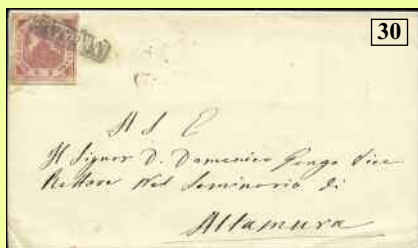 30
A S E
Il Signor D. Domenico Gengo Vice
Rettore Nel Seminario di
Altamura